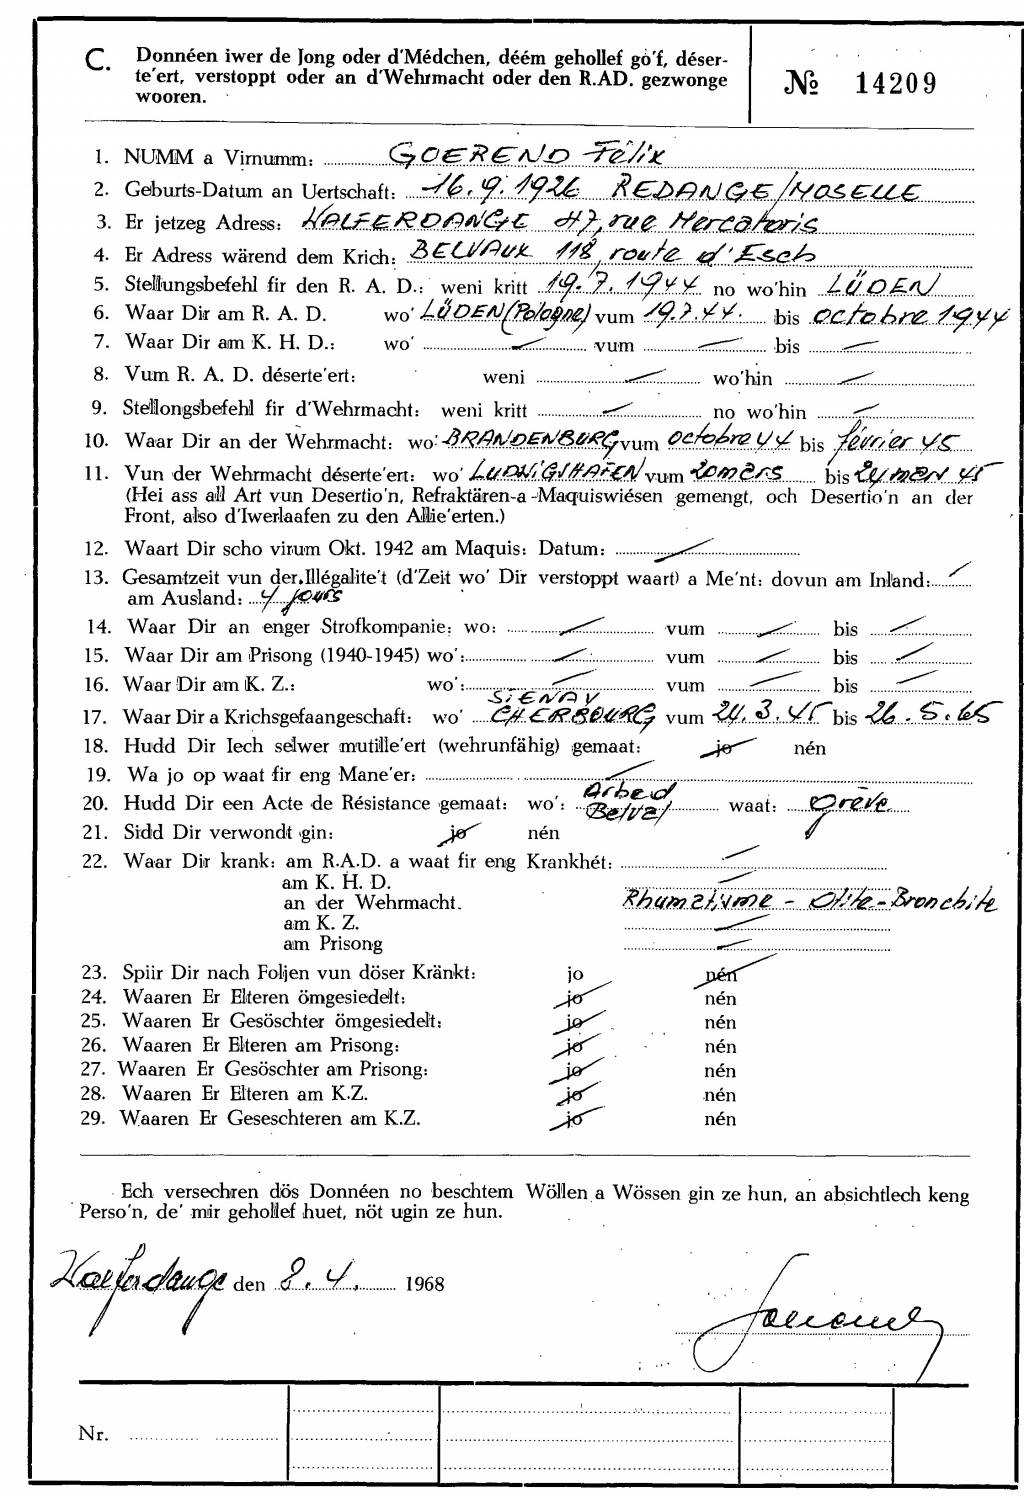 C. Donnéen iwer de Jong oder d'Médchen, déém gehollef gò'f, déser-
te'ert, verstoppt oder an d'Wehrmacht oder den R.AD. gezwonge
wooren.
№ 14209
1. NUMM a Virnumm: GOEREND Félix
2. Geburts-Datum an Uertschaft: 16.9.1926 REDANGE/MOSELLE
3. Er jetzeg Adress: WALFERDANGE 47, rue Mercatoris
4. Er Adress wärend dem Krich: BELVAUX 118, route d'Esch
5. Stellungsbefehl fir den R. A. D.: weni kritt 19.7.1944 no wo'hin LÜDEN
6. Waar Dir am R. A. D. wo' LÜDEN (Pologne) vum 19.7.44. bis octobre 1944
7. Waar Dir am K. H. D.: wo' vum bis
8. Vum R. A. D. déserte'ert: weni wo'hin
9. Stellongsbefehl fir d'Wehrmacht: weni kritt no wo'hin
10. Waar Dir an der Wehrmacht: wo' BRANDENBURG vum octobre 44 bis février 45
11. Vun der Wehrmacht déserte'ert: wo' LUDWIGSHAFEN vum 20 mars bis 24 mars 45
(Hei ass all Art vun Desertio'n, Refraktären-a-Maquiswiésen gemengt, och Desertio'n an der
Front, also d'Iwerlaafen zu den Allie'erten.)
12. Waart Dir scho virum Okt. 1942 am Maquis: Datum:
13. Gesamtzeit vun der Illégalite't (d'Zeit wo' Dir verstoppt waart) a Me'nt: dovun am Inland:
am Ausland: 4 jours
14. Waar Dir an enger Strofkompanie: wo: vum bis
15. Waar Dir am Prisong (1940-1945) wo': vum bis
16. Waar Dir am K. Z.: wo': vum bis
SIENAY
17. Waar Dir a Krichsgefaangeschaft: wo' CHERBOURG vum 24.3.45 bis 26.5.65
18. Hudd Dir Iech selwer mutille'ert (wehrunfähig) gemaat: jo nén
19. Wa jo op waat fir eng Mane'er:
Arbed
20. Hudd Dir een Acte de Résistance gemaat: wo': Belval waat: Grève
21. Sidd Dir verwondt gin: jo nén
22. Waar Dir krank: am R.A.D. a waat fir eng Krankhét:
am K. H. D.
an der Wehrmacht. Rhumatisme - Otite - Bronchite
am K. Z.
am Prisong
23. Spiir Dir nach Foljen vun döser Kränkt: jo nén
24. Waaren Er Elteren ömgesiedelt: jo nén
25. Waaren Er Gesöschter ömgesiedelt: jo nén
26. Waaren Er Elteren am Prisong: jo nén
27. Waaren Er Gesöschter am Prisong: jo nén
28. Waaren Er Elteren am K.Z. jo nén
29. Waaren Er Geseschteren am K.Z. jo nén
Ech versechren dös Donnéen no beschtem Wöllen a Wössen gin ze hun, an absichtlech keng
Perso'n, de' mir gehollef huet, nöt ugin ze hun.
Walferdange den 2.4. 1968
Nr.